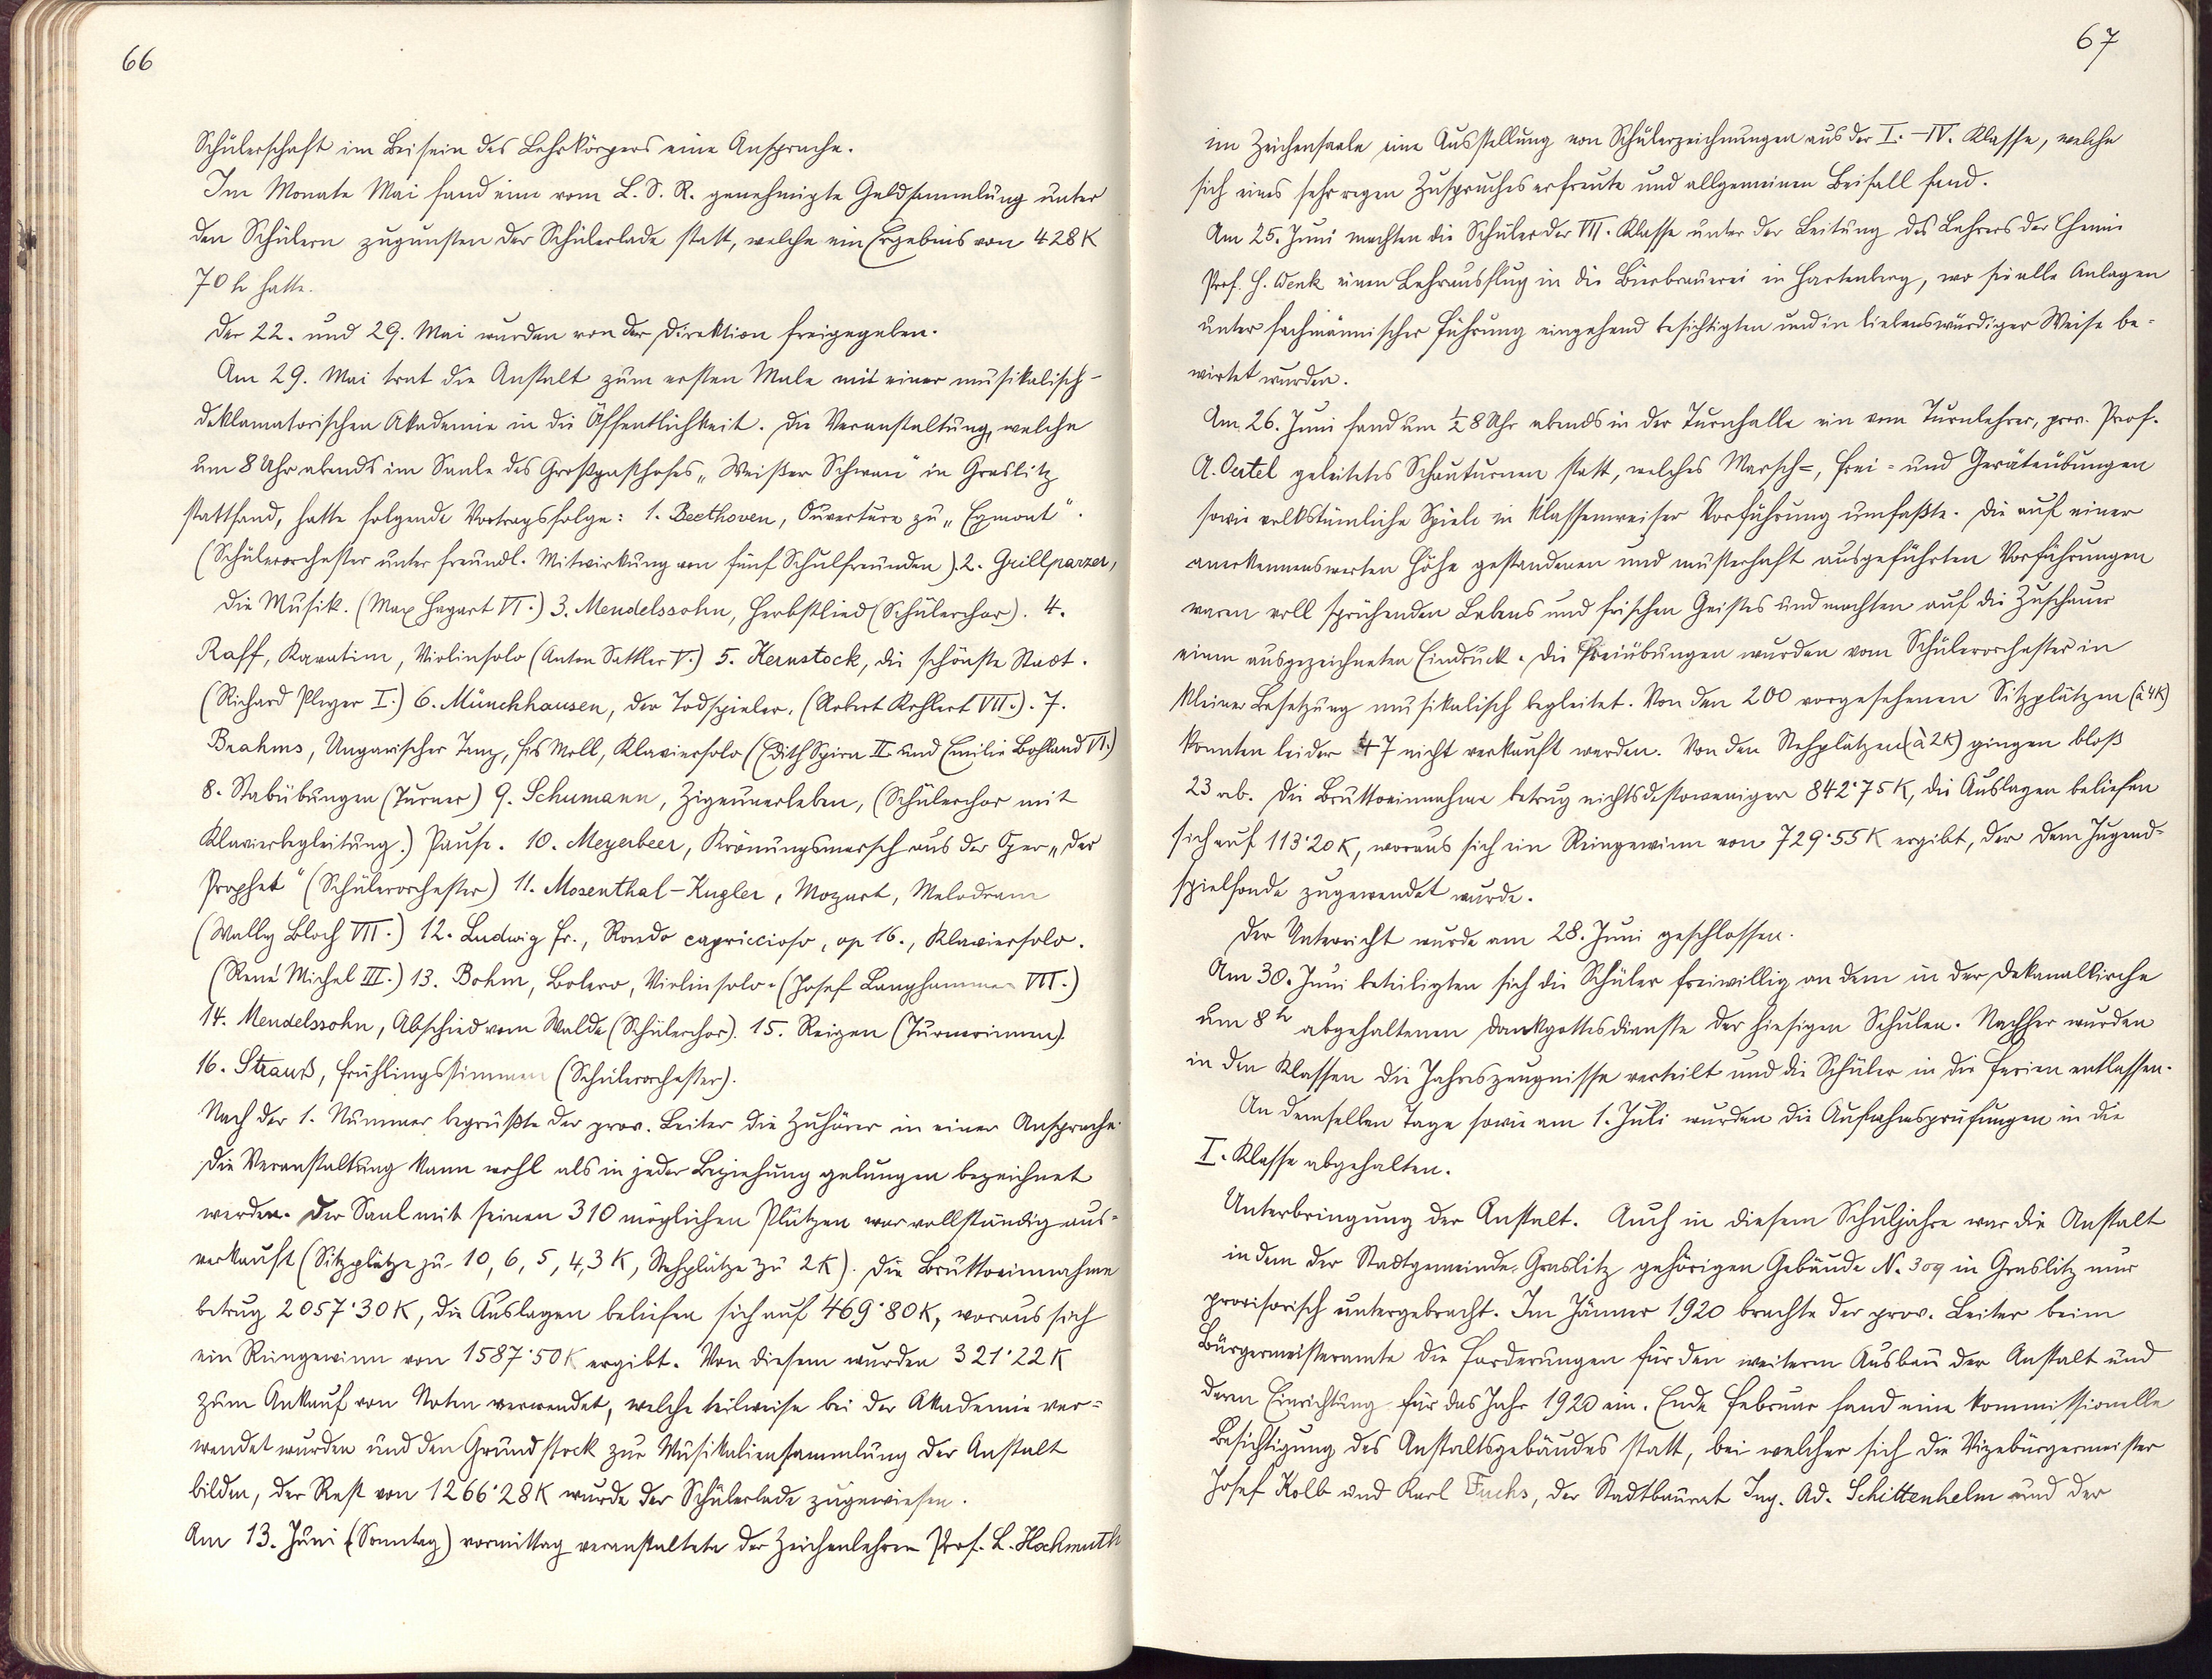 66
Schülerschaft im Beisein des Lehrkörpers eine Ansprache.
Im Monate Mai fand eine vom L. S. R. genehmigte Geldsammlung unter
den Schülern zugunsten der Schülerlade statt, welche ein Ergebnis von 428 K
70 h hatte.
Der 22. und 29. Mai wurden von der Direktion freigegeben.
Am 29. Mai trat die Anstalt zum ersten Male mit einer musikalisch-
deklamatorischen Akademie in die Öffentlichkeit. Die Veranstaltung, welche
um 8 Uhr abends im Saale des Großgasthofes „Weißer Schwan" in Graslitz
stattfand, hatte folgende Vortragsfolge: 1. Beethoven, Ouverture zu „Egmont".
(Schülerorchester unter freundl. Mitwirkung von fünf Schulfreunden). 2. Grillparzer,
Die Musik. (Max Hagart VI.) 3. Mendelssohn, Herbstlied (Schülerchor). 4.
Raff, Kavatine, Violinsolo (Anton Sattler V.) 5. Kernstock, die schönste Stadt.
(Richard Pleyer I.) 6. Münchhausen, der Todspieler. (Robert Kohlert VII.). 7.
Brahms, Ungarischer Tanz, fis Moll, Klaviersolo (Edith Spira II. und Emilie Bohland VI.)
8. Stabübungen (Turner) 9. Schumann, Zigeunerleben, (Schülerchor mit
Klavierbegleitung.) Pause. 10. Meyerbeer, Krönungsmarsch aus der Oper „Der
Prophet" (Schülerorchester) 11. Mosenthal-Kugler, Mozart, Melodram
(Wally Bloch VII.) 12. Ludwig Fr., Rondo capriccioso, op 16., Klaviersolo.
(René Michel III.) 13. Bohm, Bolero, Violinsolo. (Josef Langhammer VII.)
14. Mendelssohn, Abschied vom Walde (Schülerchor). 15. Reigen (Turnerinnen).
16. Strauß, Frühlingsstimmen (Schülerorchester).
Nach der 1. Nummer begrüßte der prov. Leiter die Zuhörer in einer Ansprache.
Die Veranstaltung kann wohl als in jeder Beziehung gelungen bezeichnet
werden. Der Saal mit seinen 310 möglichen Plätzen war vollständig aus=
verkauft (Sitzplätze zu 10, 6, 5, 4, 3 K, Stehplätze zu 2 K). Die Bruttoeinnahme
betrug 2057·30 K, die Auslagen beliefen sich auf 469·80 K, woraus sich
ein Reingewinn von 1587·50 K ergibt. Von diesem wurden 321·22 K
zum Ankauf von Noten verwendet, welche teilweise bei der Akademie ver=
wendet wurden und den Grundstock zur Musikaliensammlung der Anstalt
bilden, der Rest von 1266·28 K wurde der Schülerlade zugewiesen.
Am 13. Juni (Sonntag) vormittag veranstaltete der Zeichenlehrer Prof. L. Hochmuth
67
im Zeichensaale eine Ausstellung von Schülerzeichnungen aus der I.-IV. Klasse, welche
sich eines sehr regen Zuspruches erfreute und allgemeinen Beifall fand.
Am 25. Juni machten die Schüler der VII. Klasse unter der Leitung des Lehrers der Chemie
Prof. H. Denk einen Lehrausflug in die Bierbrauerei in Hartenberg, wo sie alle Anlagen
unter fachmännischer Führung eingehend besichtigten und in liebenswürdiger Weise be=
wirtet wurden.
Am 26. Juni fand um ½ 8 Uhr abends in der Turnhalle ein vom Turnlehrer, prov. Prof.
A. Oertel geleitetes Schauturnen statt, welches Marsch=, Frei= und Geräteübungen
sowie volkstümliche Spiele in klassenweiser Vorführung umfaßte. Die auf einer
anerkennenswerten Höhe gestandenen und musterhaft ausgeführten Vorführungen
waren voll sprühenden Lebens und frischen Geistes und machten auf die Zuschauer
einen ausgezeichneten Eindruck. Die Freiübungen wurden vom Schülerorchester in
kleiner Besetzung musikalisch begleitet. Von den 200 vorgesehenen Sitzplätzen (à 4 K)
konnten leider 47 nicht verkauft werden. Von den Stehplätzen (à 2 K) gingen bloß
23 ab. Die Bruttoeinnahme betrug nichtsdestoweniger 842·75 K, die Auslagen beliefen
sich auf 113·20 K, woraus sich ein Reingewinn von 729·55 K ergibt, der dem Jugend=
spielfonde zugewendet wurde.
Der Unterricht wurde am 28. Juni geschlossen.
Am 30. Juni beteiligten sich die Schüler freiwillig an dem in der Dekanalkirche
um 8 h abgehaltenen Dankgottesdienste der hiesigen Schulen. Nachher wurden
in den Klassen die Jahreszeugnisse verteilt und die Schüler in die Ferien entlassen.
An demselben Tage sowie am 1. Juli wurden die Aufnahmsprüfungen in die
I. Klasse abgehalten.
Unterbringung der Anstalt. Auch in diesem Schuljahre war die Anstalt
in dem der Stadtgemeinde Graslitz gehörigen Gebäude N. 309 in Graslitz nur
provisorisch untergebracht. Im Jänner 1920 brachte der prov. Leiter beim
Bürgermeisteramte die Forderungen für den weiteren Ausbau der Anstalt und
deren Einrichtung für das Jahr 1920 ein. Ende Februar fand eine kommissionelle
Besichtigung des Anstaltsgebäudes statt, bei welcher sich die Vizebürgermeister
Josef Kolb und Karl Fuchs, der Stadtbaurat Ing. Ad. Schittenhelm und der